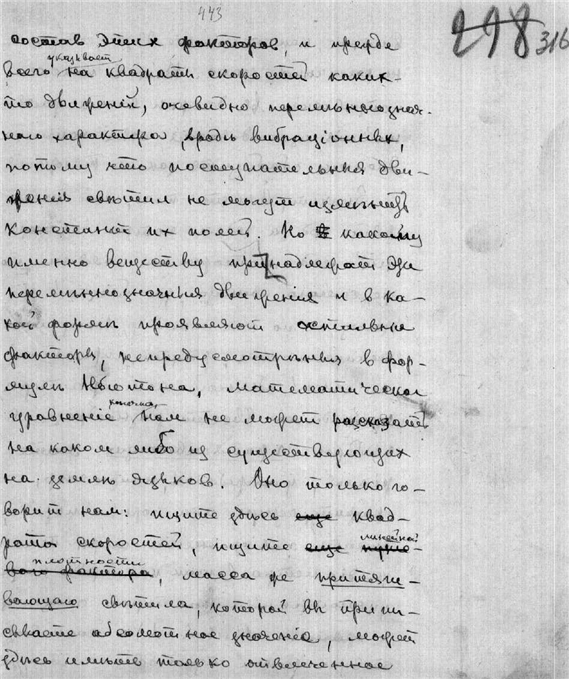 443
298 316
состав этих факторов, и прежде
указывает
всего на квадраты скоростей каких-
то движеній, очевидно перемѣннозная-
наго характера, вродѣ вибраціонных,
потому что поступательныя дви-
женія свѣтил не могут измѣнить
констант их полей. Но какому
именно веществу принадлежат эти
перемѣннозначныя движенія и в ка-
кой формѣ проявляют остальные
факторы, непредусмотрѣнныя в фор-
мулѣ Ньютона, математическое
уравненіе конечно, нам не может рассказать
на каком либо из существующих
на землѣ языков. Оно только го-
ворит нам: ищите здѣсь еще квад-
рата скоростей, ищите еще линейной
плотности
вого фактора, масса же притяги-
вающаго свѣтила, которой вы припи-
сываете абсолютное значеніе, может
здѣсь имѣть только отвлеченное